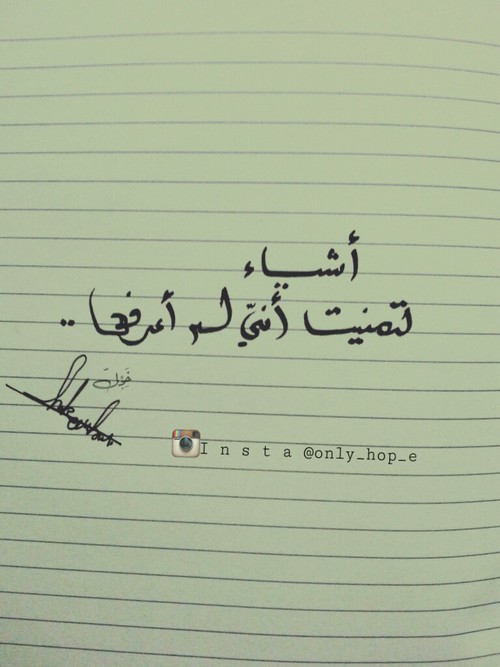 أشياء
تمنيت أنني لم أعرفها ..
Insta @only_hop_e